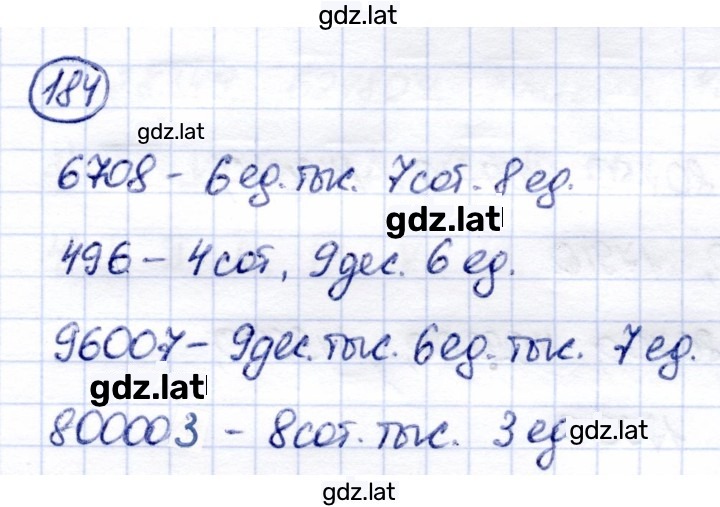 gdz.lat
184
gdz.lat
6708 - 6 ед. тыс. 7 сот. 8 ед.
gdz.lat
496 - 4 сот, 9 дес. 6 ед.
96007 - 9 дес. тыс. 6 ед. тыс. 7 ед.
gdz.lat
800003 - 8 сот. тыс. 3 ед
gdz.lat
gdz.lat